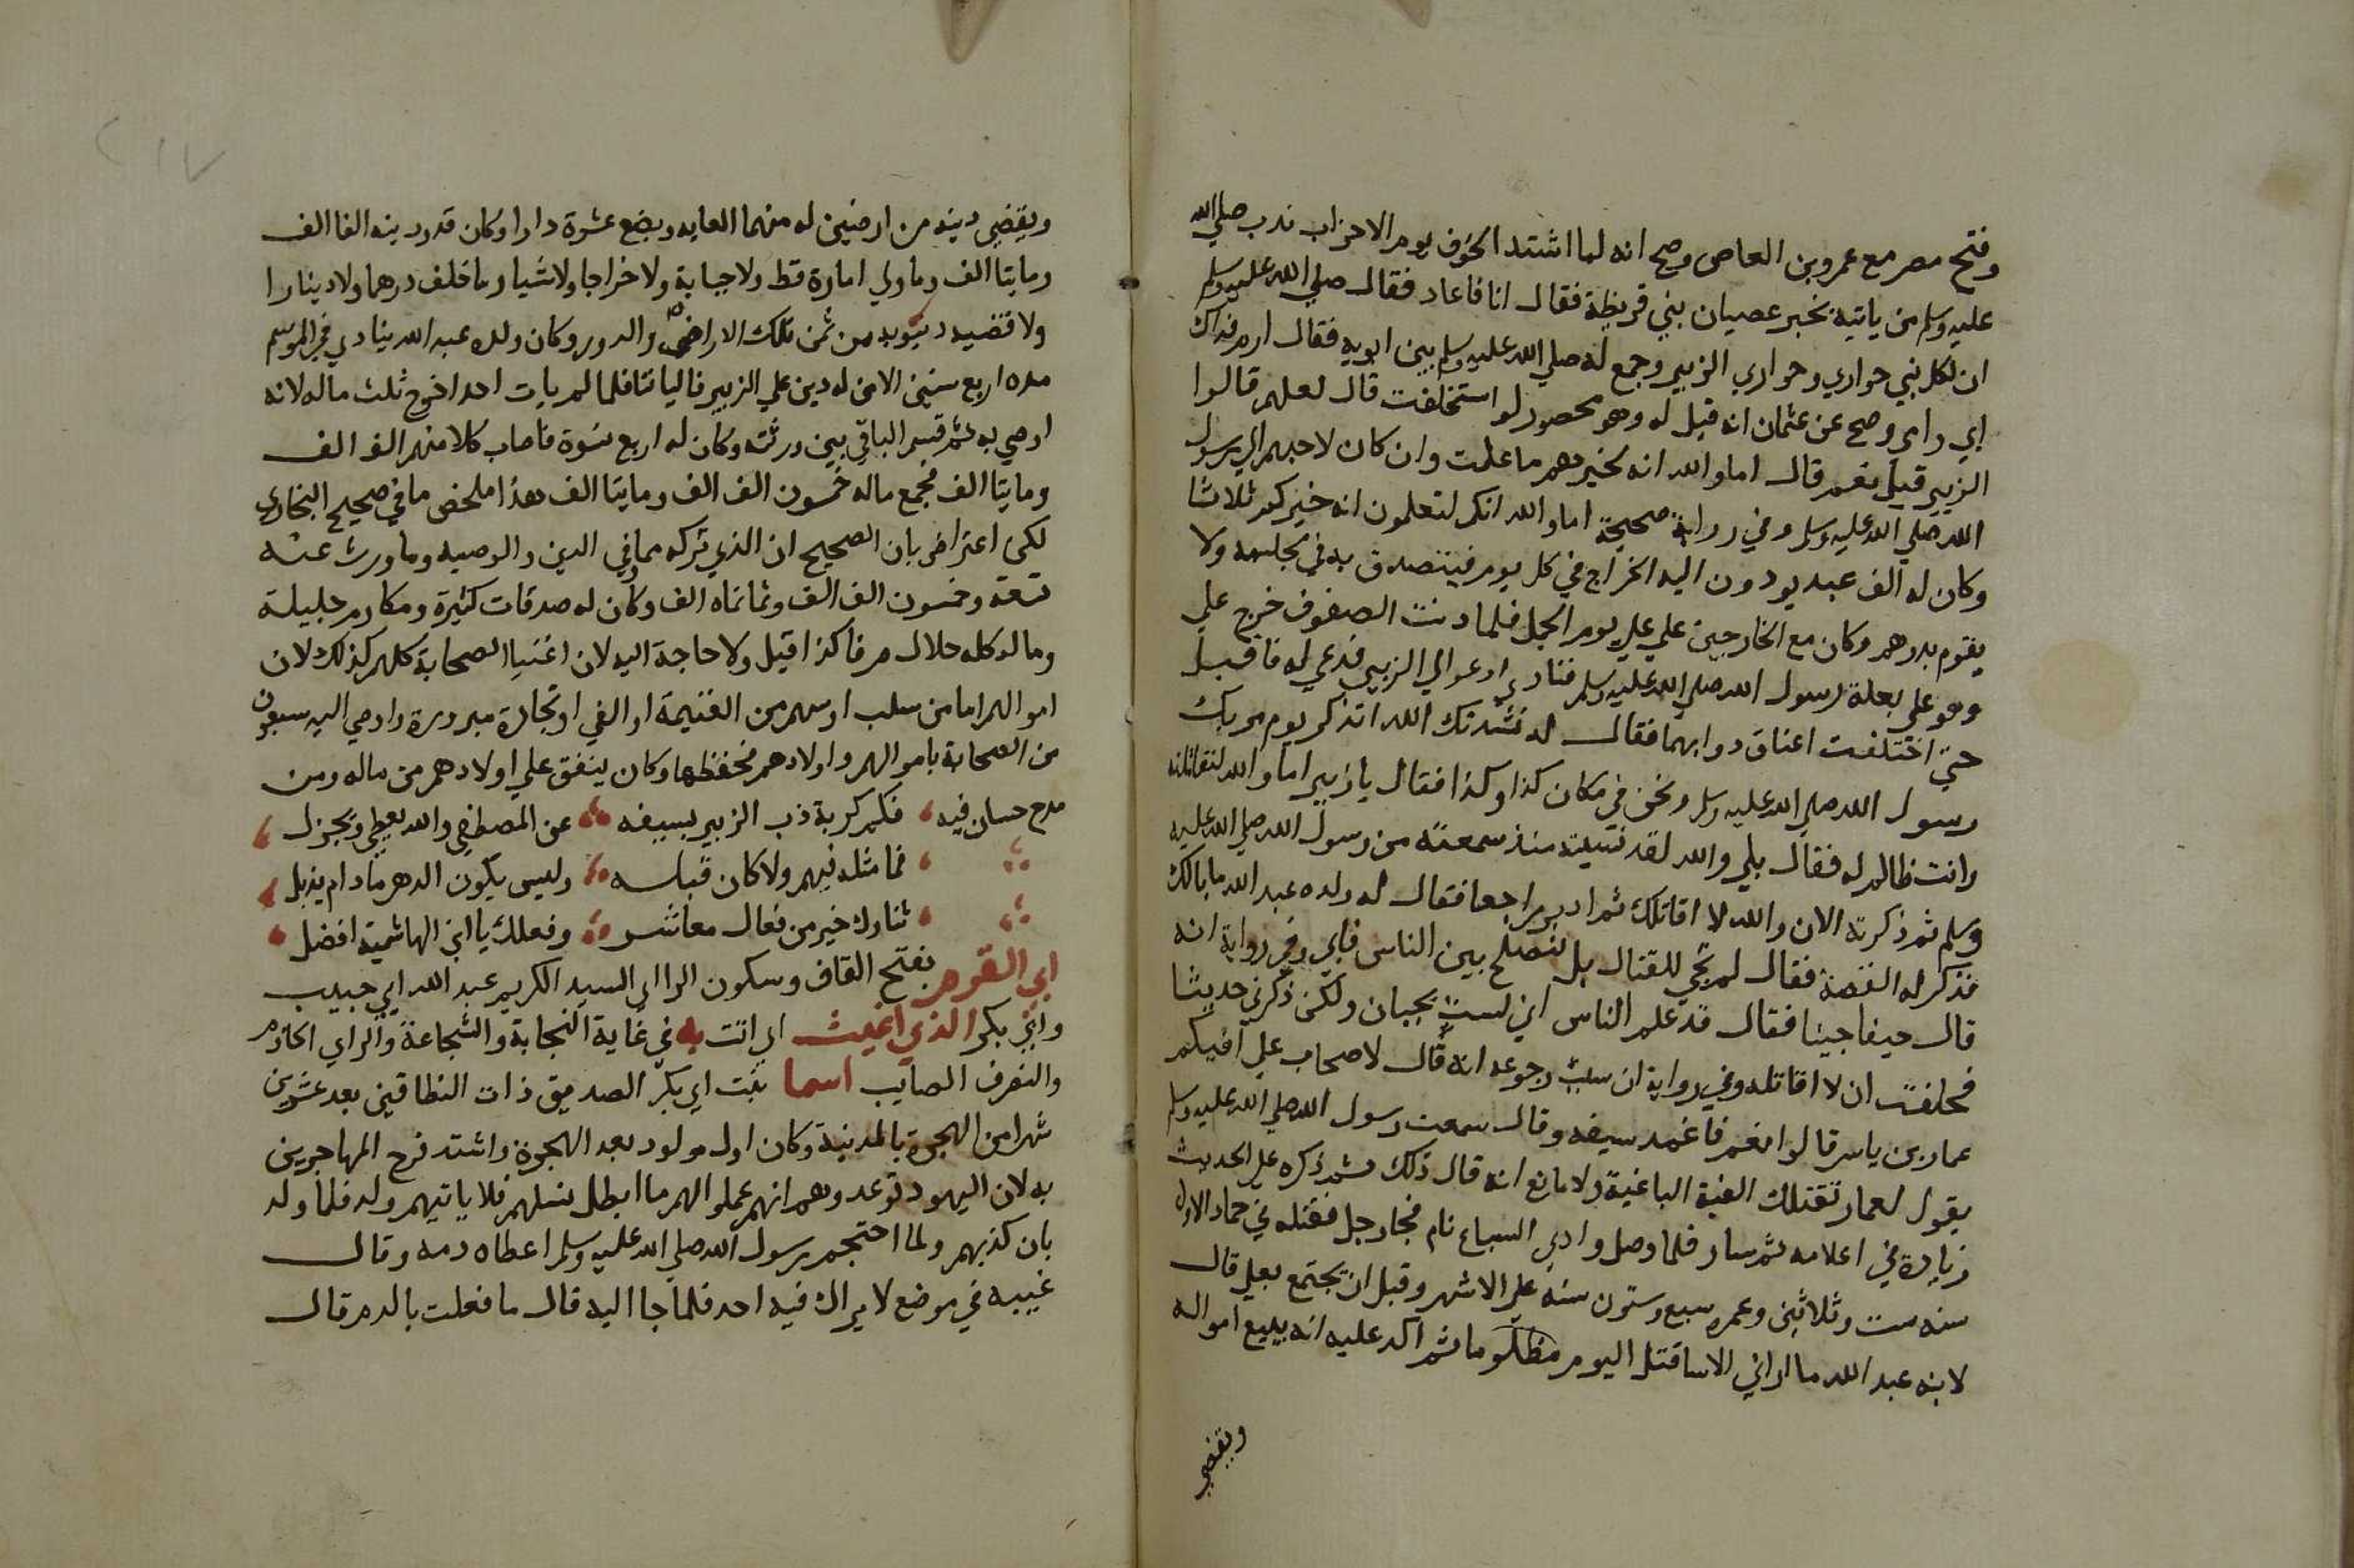 وفتح مصر مع عمرو بن العاص وصح انه لما اشتد الخوف يوم الاحزاب ندب صلي الله
عليه وسلم من ياتيه بخبر عصيان بني قريظة فقال انا فاعاد فقال صلي الله عليه وسلم
ان لكل نبي حواري وحواري الزبير وجمع له صلي الله عليه وسلم بين ابويه فقال ارم فداك
ابي وامي وصح عن عثمان انه قيل له وهو محصور لو استخلفت قال لعلهم قالوا
الزبير قيل نعم قال اما والله انه لخيرهم ما علمت وان كان لاحبهم الي رسول
الله صلي الله عليه وسلم وفي رواية صحيحة اما والله انكم لتعلمون انه خيركم ثلاثا
وكان له الف عبد يودون اليه الخراج في كل يوم فيتصدق به في مجلسه ولا
يقوم بدرهم وكان مع الخارجين علي علي يوم الجمل فلما دنت الصفوف خرج علي
وهو علي بغلة رسول الله صلي الله عليه وسلم فنادي ادعوا لي الزبير فدعي له فاقبل
حتي اختلفت اعناق دوابهما فقال له نشدتك الله اتذكر يوم مر بك
رسول الله صلي الله عليه وسلم ونحن في مكان كذا وكذا فقال يا زبير اما والله لتقاتلنه
وانت ظالم له فقال بلي والله لقد نسيته منذ سمعته من رسول الله صلي الله عليه
وسلم ثم ذكرته الان والله لا اقاتلك ثم ادبر راجعا فقال له ولده عبد الله ما بالك
فذكر له القصة فقال لم تجي للقتال بل لتصلح بين الناس فابي وفي رواية انه
قال حيفا جينا فقال قد علم الناس اني لست بجبان ولكن ذكرني حديثا
فحلفت ان لا اقاتله وفي رواية ان سبب رجوعه انه قال لاصحاب علي افيكم
عمار بن ياسر قالوا نعم فاغمد سيفه وقال سمعت رسول الله صلي الله عليه وسلم
يقول لعمار تقتلك الفية الباغية ولا مانع انه قال ذلك ثم ذكره علي الحديث
زيادة في اعلامه ثم سار فلما وصل وادي السباع نام فجا رجل فقتله في جماد الاولي
سنه ست وثلاثين وعمره سبع وستون سنه علي الاشهر وقبل ان يجتمع بعلي قال
لابنه عبد الله ما اراني الا ساقتل اليوم مظلوما ثم اكد عليه انه يبيع امواله
ويقضي
ويقضي دينه من ارضين له منهما الغابه وبضع عشرة دارا وكان قدر دينه الفا الف
ومايتا الف وما ولي امارة قط ولا جباية ولا خراجا ولا شيا وما خلف درهما ولا دينارا
ولا قضيد ديونه من ثمن تلك الاراضي والدور وكان ولده عبد الله ينادي في الموسم
مده اربع سنين الا من له دين علي الزبير فالياتنا فلما لم يات احد اخرج ثلث ماله لانه
اوصي به ثم قسم الباقي بين ورثته وكان له اربع نسوة فاصاب كلا منهم الف الف
ومايتا الف فجمع ماله خمسون الف الف ومايتا الف هذا ملخص ما في صحيح البخاري
لكن اعترض بان الصحيح ان الذي تركه مما في الدين والوصيه وما ورث عنه
تسعة وخمسون الف الف وثمانماه الف وكان له صدقات كثيرة ومكارم جليلة
وماله كله حلال صرفا كذا قيل ولا حاجة اليه لان اغنيا الصحابة كلهم كذلك لان
اموالهم اما من سلب او سهم من الغنيمة او الفي او تجارة مبرورة واوصي اليه سبعون
من الصحابة باموالهم واولادهم فحفظها وكان ينفق علي اولادهم من ماله ومن
مدح حسان فيه فكم كربة ذب الزبير بسيفه عن المصطفي والله يعطي ويجزل
فما مثله فيهم ولا كان قبله وليس يكون الدهر ما دام يذبل
ثناوك خير من فعال معاشر وفعلك يا ابن الهاشمية افضل
ابي القرم بفتح القاف وسكون الرا اي السيد الكريم عبد الله ابي خبيب
وابي بكر الذي انجبت اي اتت به في غاية النجابة والشجاعة والراي الحازم
والتصرف الصايب اسما بنت ابي بكر الصديق ذات النطاقين بعد عشرين
شهرا من الهجرة بالمدينة وكان اول مولود بعد الهجرة واشتد فرح المهاجرين
به لان اليهود توعدوهم انهم عملوا لهم ما ابطل نسلهم فلا ياتيهم ولد فلما ولد
بان كذبهم ولما احتجم رسول الله صلي الله عليه وسلم اعطاه دمه وقال
غيبه في موضع لا يراك فيه احد فلما جا اليه قال ما فعلت بالدم قال